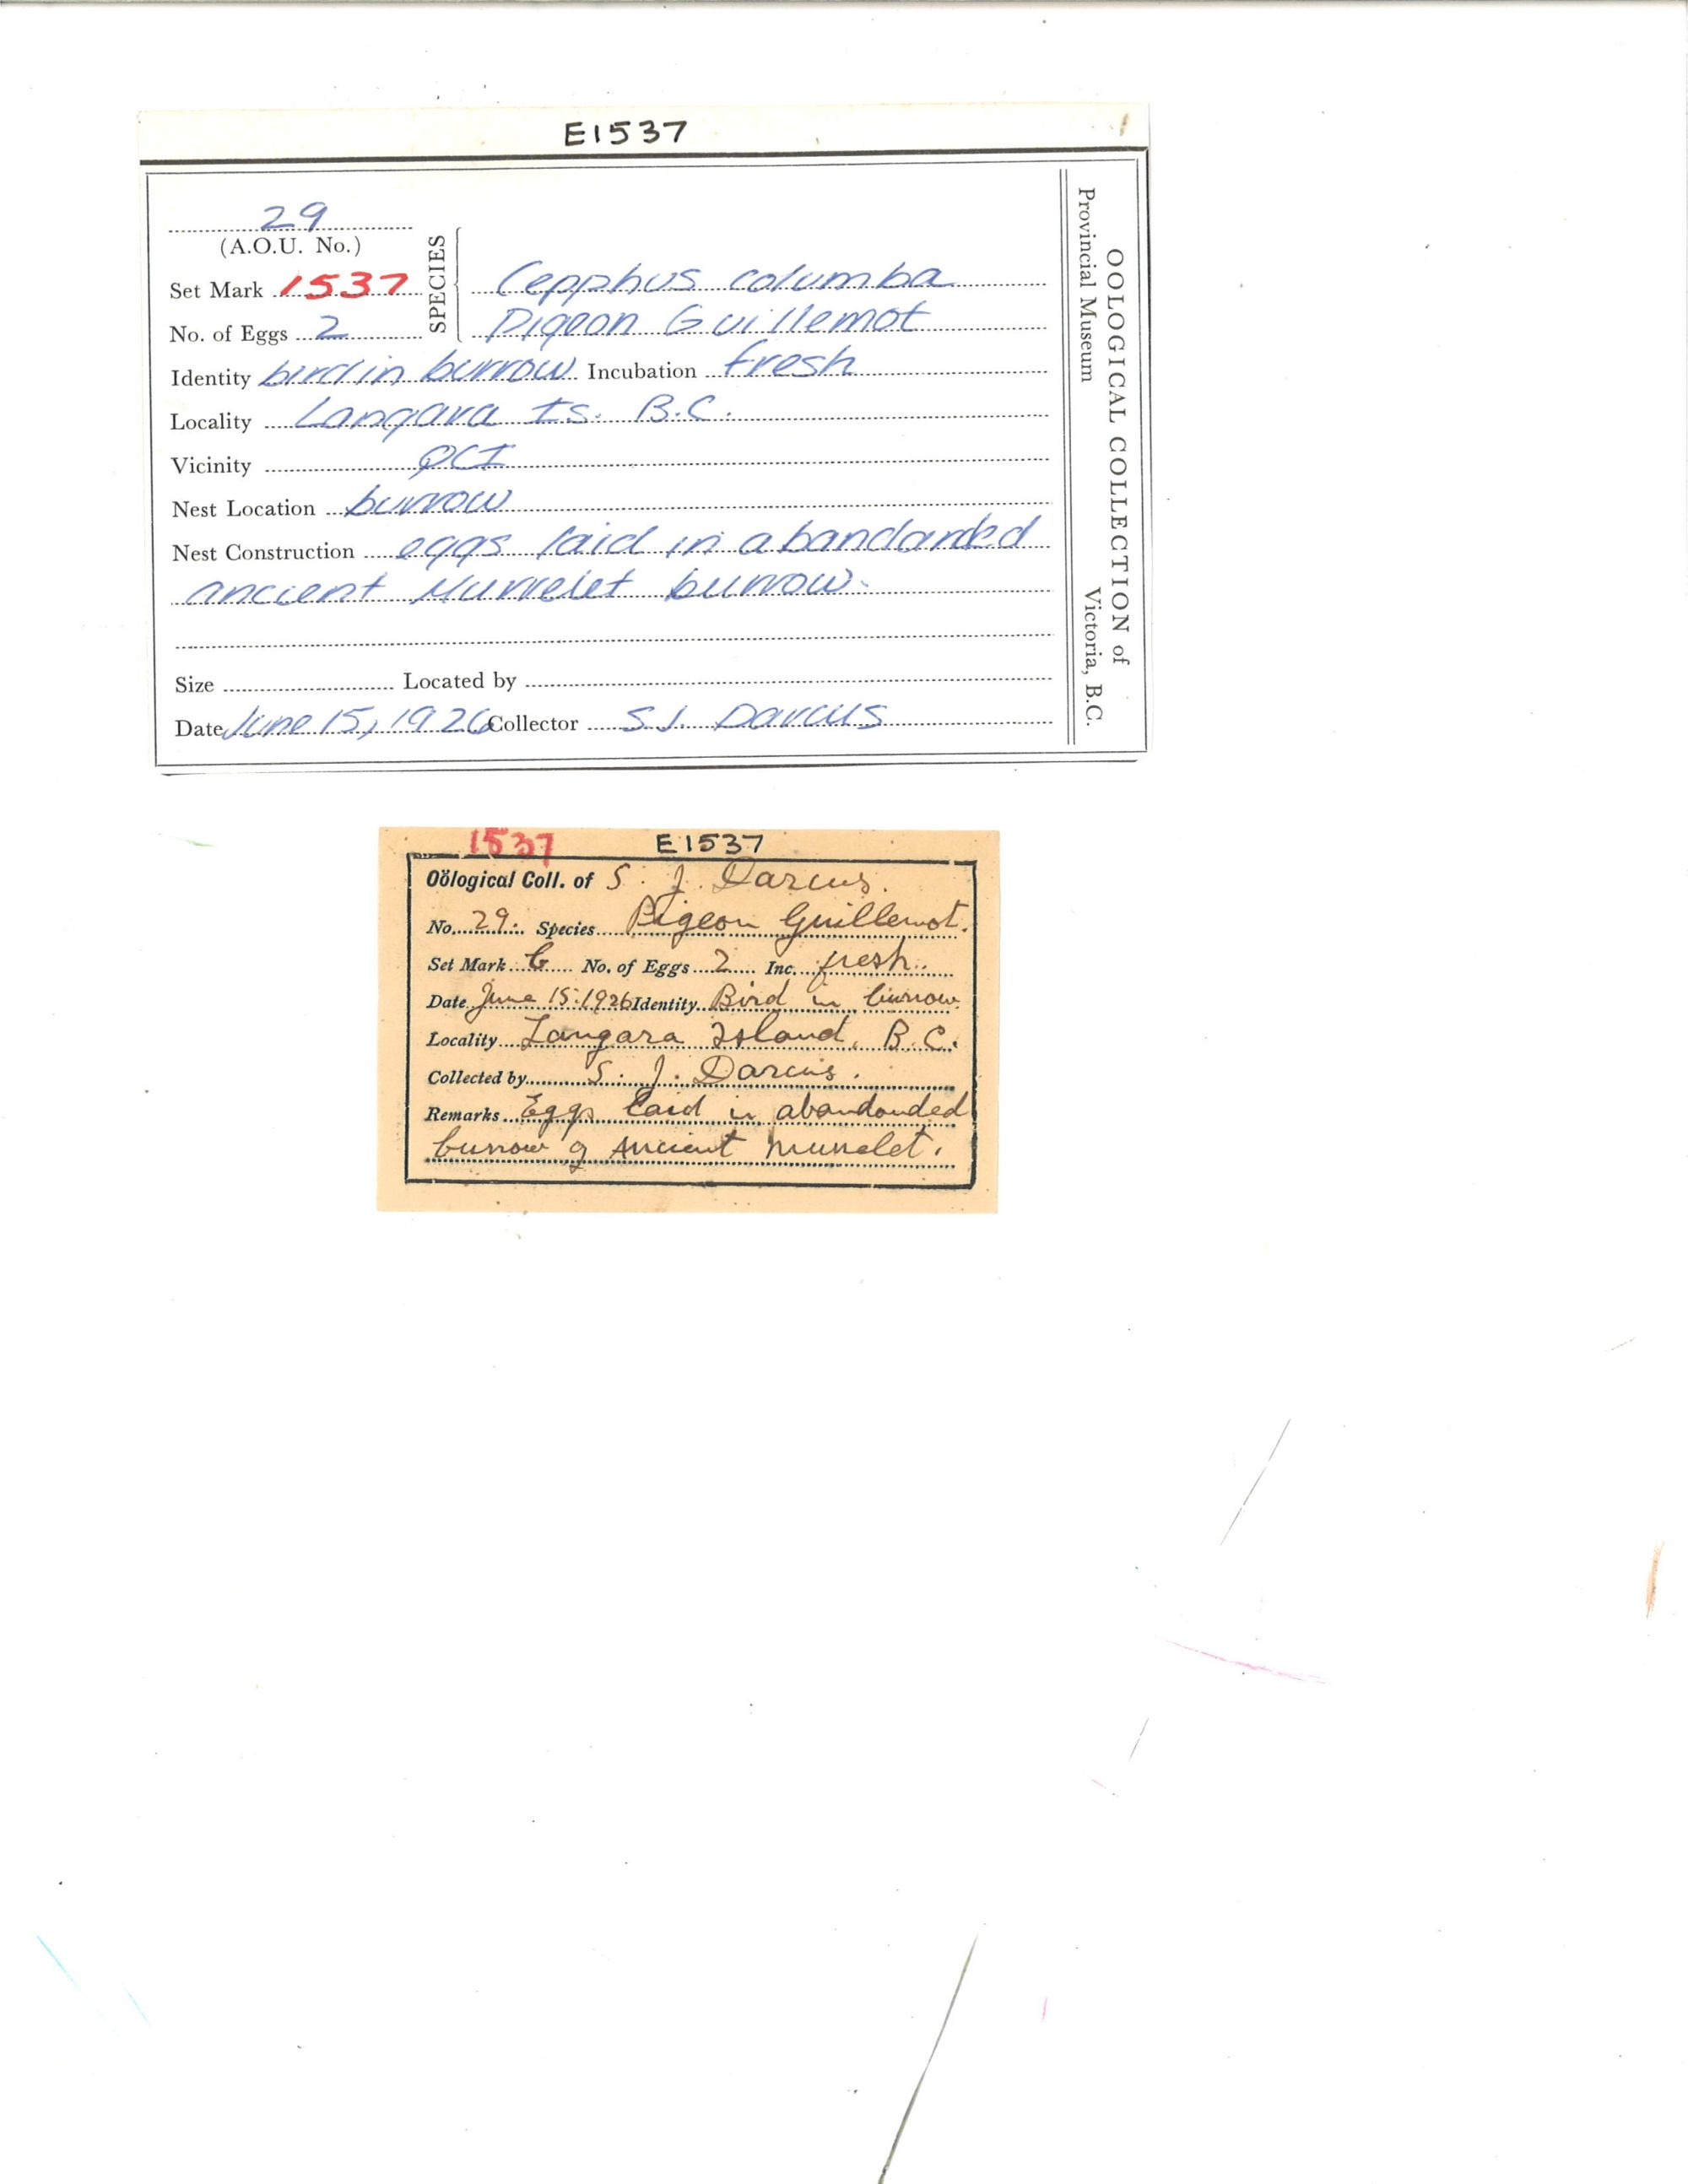 E1537
29
(A.O.U. No.)
SPECIES
Set Mark 1537
Cepphus columba
No. of Eggs 2
Pigeon Guillemot
Identity bird in burrow Incubation fresh
Locality Langara Is. B.C.
Vicinity QCI
Nest Location burrow
Nest Construction eggs laid in abandonded
ancient Murrelet burrow.
Size Located by
Date June 15, 1926 Collector S.J. Darcus
OOLOGICAL COLLECTION of
Provincial Museum Victoria, B.C.
1537 E1537
Oölogical Coll. of S. J. Darcus.
No. 29. Species Pigeon Guillemot.
Set Mark No. of Eggs 2 Inc. fresh.
Date June 15. 1926 Identity Bird in burrow.
Locality Langara Island, B.C.
Collected by S. J. Darcus.
Remarks Eggs laid in abandonded
burrow of Ancient Murrelet.